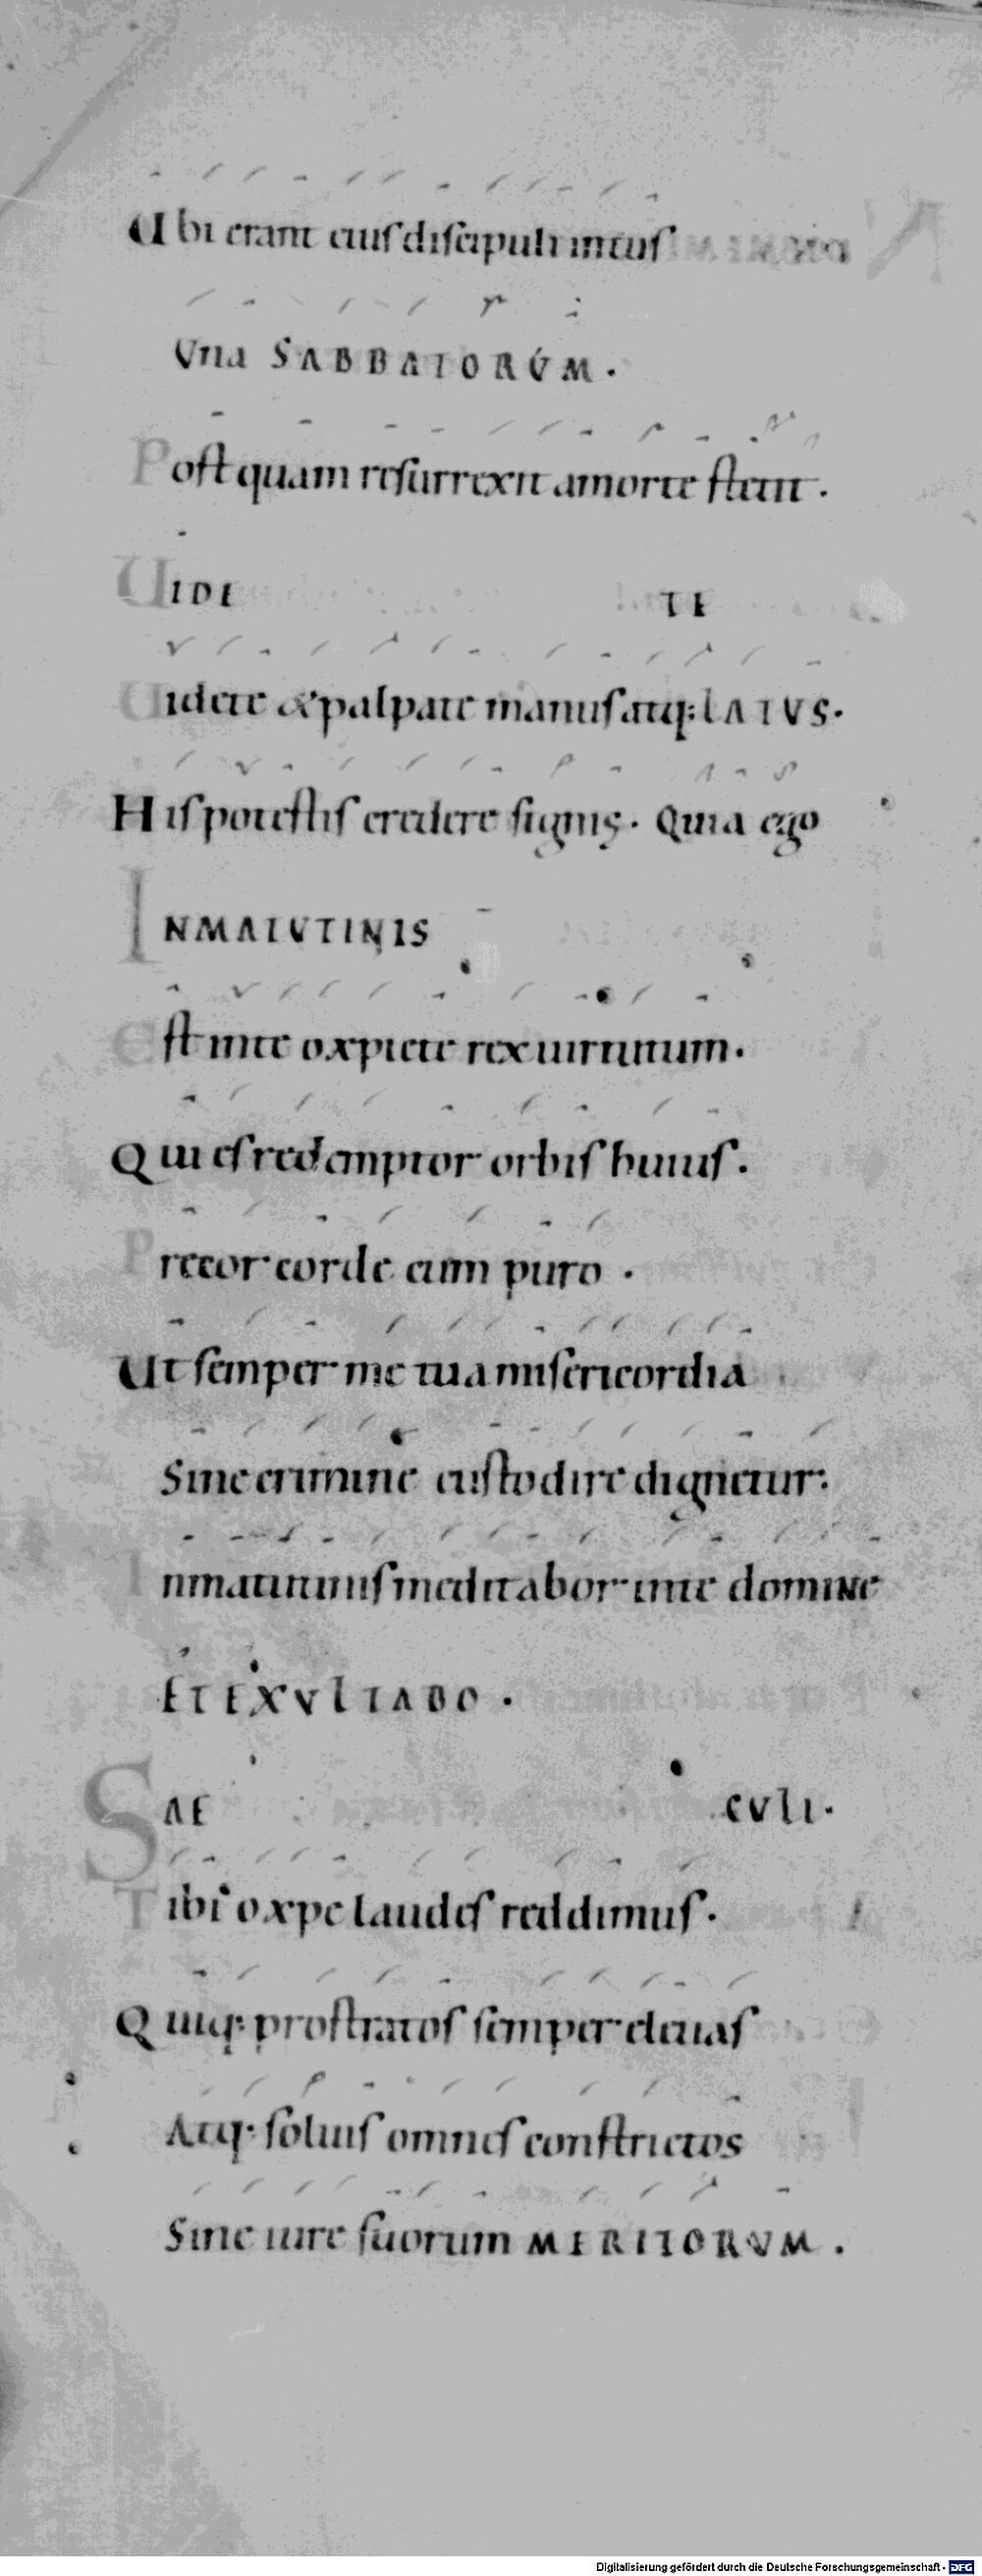 Ubi erant eius discipuli intus
Una SABBATORUM.
Postquam resurrexit amorte stetit.
UIDE TE
Uidete & palpate manus atq; LATUS.
His potestis credere signis. Quia ego
INMATUTINIS
Est inte o xpicte rex uirtutum.
Qui es redemptor orbis huius.
Precor corde cum puro.
Ut semper me tua misericordia
Sine crimine custodire dignetur.
Inmatutinis meditabor inte domine
ETEXULTABO.
SAE CULI.
Tibi o xpe laudes reddimus.
Quiq; prostratos semper eleuas
Atq; soluis omnes constrictos
Sine iure suorum MERITORUM.
Digitalisierung gefördert durch die Deutsche Forschungsgemeinschaft - DFG